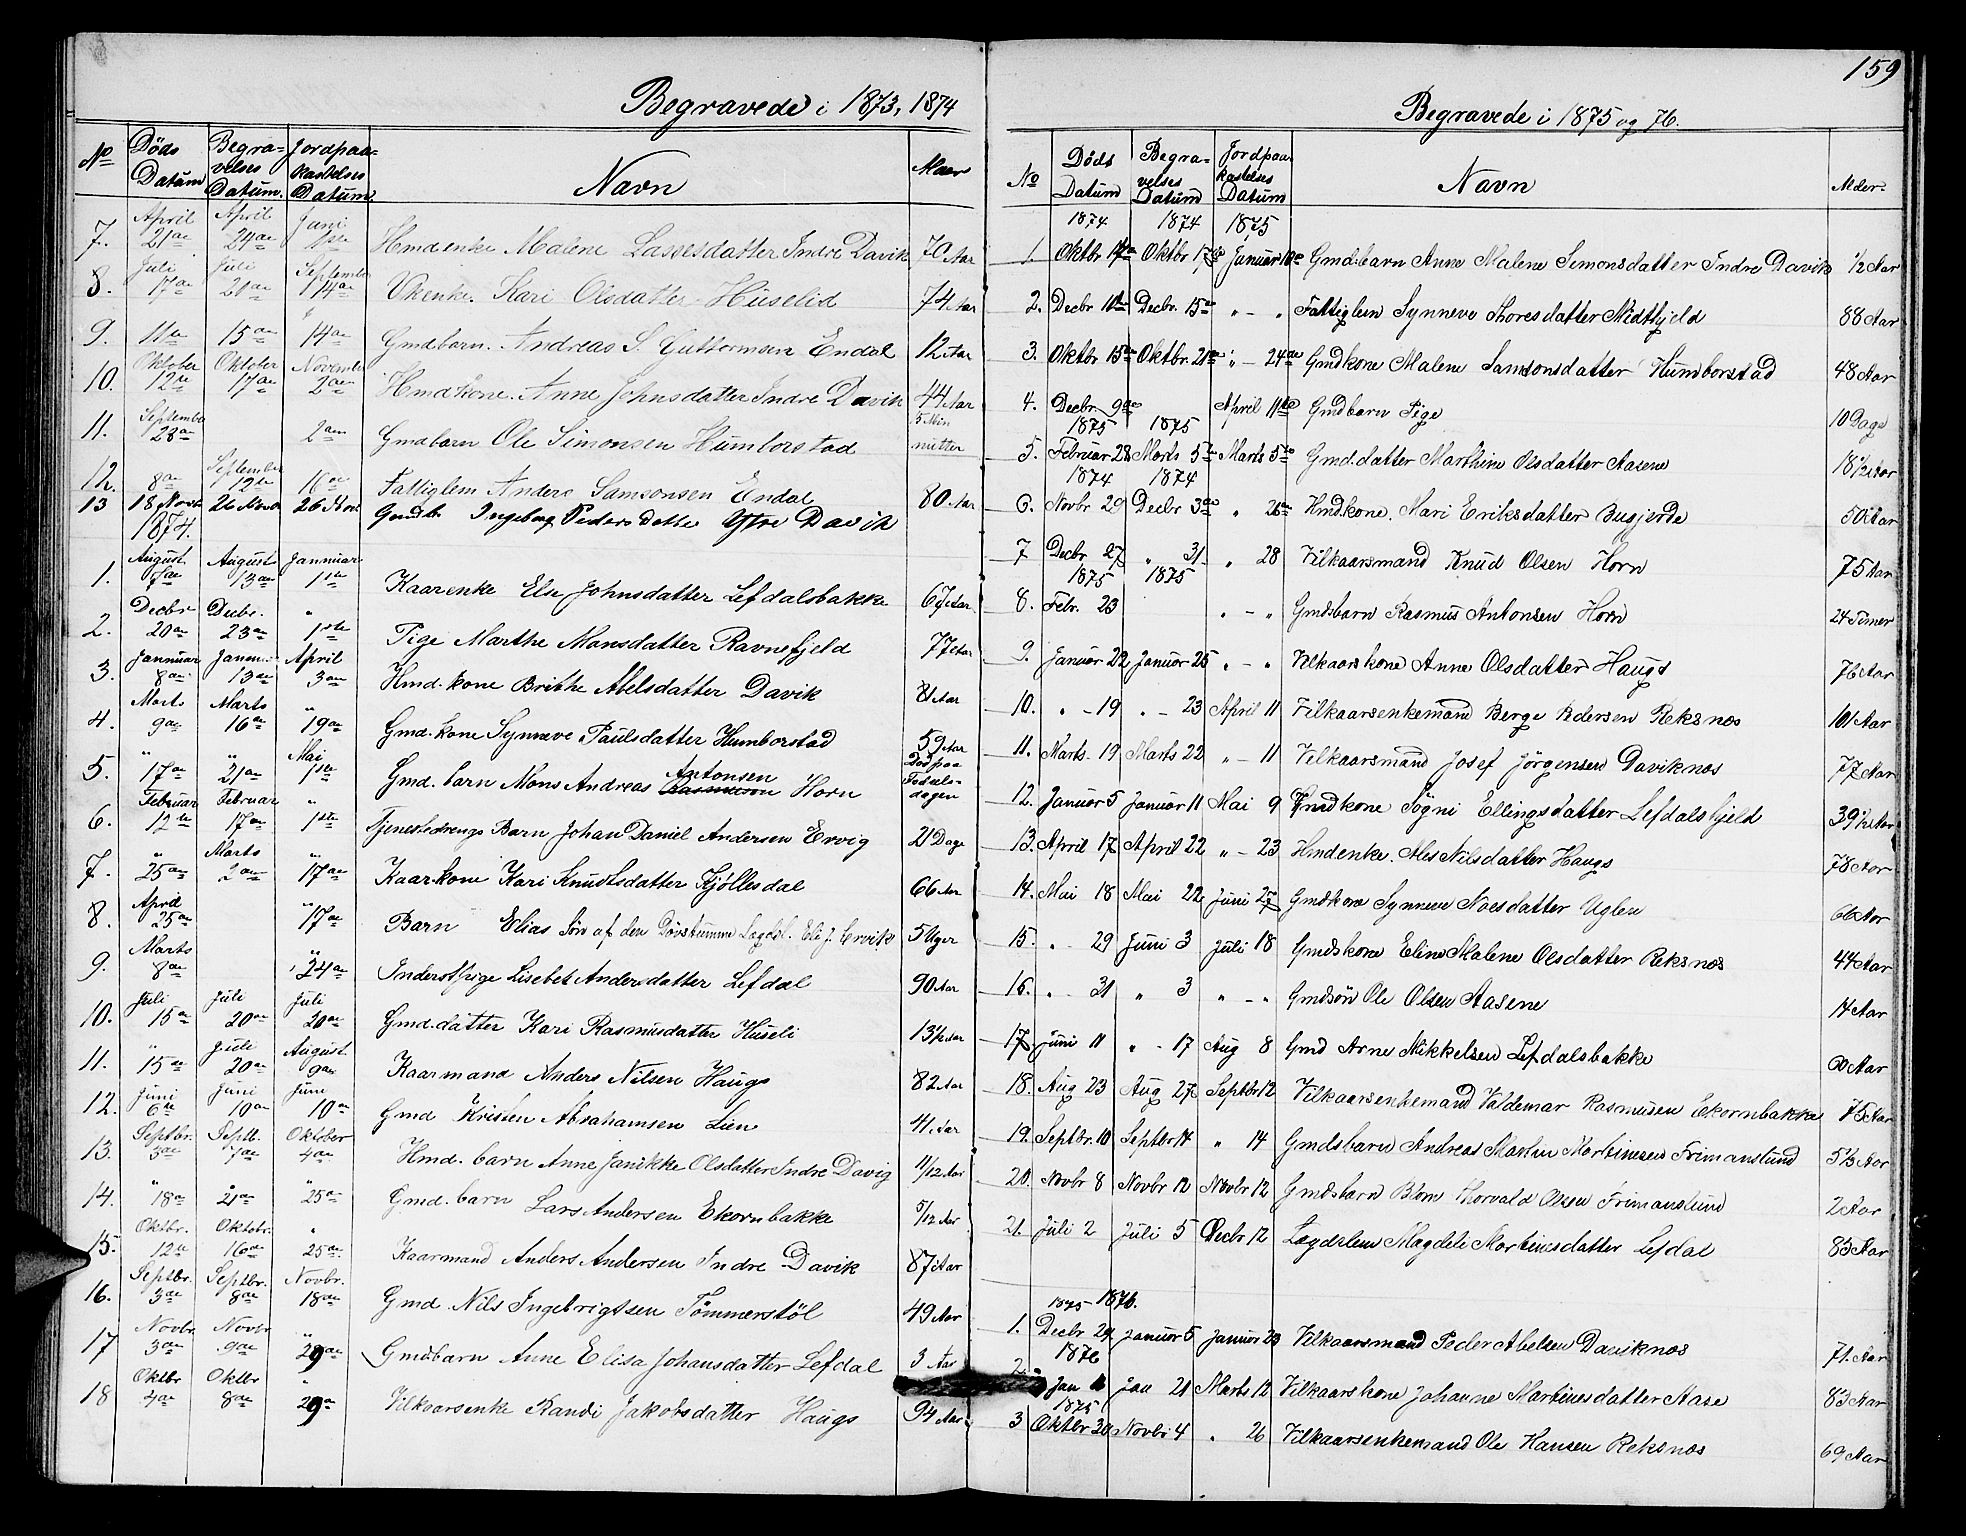 159
Begravede i 1873, 1874
No Døds Datum Begravelses Datum. Jordpaakastelses Datum. Navn Alder
7. April 21de April 24de Juni 1ste Hmdenke Malene Lassesdatter Indre Davik 70 Aar
8. Juli 17de Juli 21de September 14de Vkenke. Kari Olsdatter Huselid 74 Aar
9. 11te 15de " 14de Gmdbarn. Andreas S. Guttormsen Endal 12 Aar
10. Oktober 12te Oktober 17de November 2den Hmdkone. Anne Johnsdatter Indre Davik 44 Aar
11. September 28de 2den Gmdbarn Ole Simonsen Humborstad 5 Minutter
12. 8de September 12te 16de Fattiglem Anders Samsonsen Endal 80 Aar
13 18 Novbr 26 Novbr 26 Novbr Gmdb. Ingeborg Pedersdatter Ytre Davik
1874.
1. August 7de August 13de Jannuar 1ste Kaarenke Else Johnsdatter Lefdalsbakke 67 Aar
2. Decbr 20de Decbr. 23de " 1ste Pige Marthe Monsdatter Ravnefjeld 77 Aar
3. Jannuar 8de Jannuar 13de April 3den Hmd. kone Brithe Abelsdatter Davik 81 Aar
4. Marts 9de Marts 16de " 19de Gmd. kone Synneve Paulsdatter Humborstad 59 Aar
5. " 17de " 21de Mai 1ste Gmd. barn Mons Andreas Antonsen Rasmussen Horn Død paa Fødselsdagen
6. Februar 12te Februar 17de " 1ste Tjenestedrengs Barn Johan Daniel Andersen Ervig 21 Dage
7. " 25de Marts 2den " 17de Kaarkone Kari Knudtsdatter Kjøllesdal 66 Aar
8. April 25de " 17de Barn Elias Søn af den Døvstumme Lægdsl. Eli J. Ervik 5 Uger
9. Marts 8de " 24de Inderstpige Lisebet Andersdatter Lefdal 90 Aar
10. Juli 15de Juli 20de Juli 20de Gmd. datter Kari Rasmusdatter Huseli 13½ Aar
11. " 15de Juli 20de August 9de Kaarmand Anders Nilsen Haugs 82 Aar
12. Juni 6te Juni 10de Juni 10de Gmd Kristen Abrahamsen Lien 41 Aar
13. Septbr. 3de Septb. 7de Oktober 4de Hmd. barn Anne Janikke Olsdatter Indre Davig 11/12 Aar
14. " 18de " 21de " 25de Gmd. barn Lars Andersen Ekornbakke 5/12 Aar
15. Oktbr. 12te Oktobr. 16de " 25de Kaarmand Anders Andersen Indre Davik 87 Aar
16. Septbr. 3de Septbr. 8de Novbr. 18de Gmd. Nils Ingebrigtsen Tømmerstøl 49 Aar
17 Novbr. 3de Novbr 9de " 29de Gmdbarn Anne Elisa Johansdatter Lefdal 3 Aar
18 Oktbr. 4de Oktbr 8de " 29de Vilkaarsenke Randi Jakobsdatter Haugs 94 Aar
Begravede i 1875 og 76.
No Døds Datum Begravelses Datum Jordpaakastelses Datum Navn Alder.
1874 1874 1875
1. Oktbr 14de Oktbr 17de Januar 10de Gmd.barn Anne Malene Simonsdatter Indre Davik ½ Aar
2. Decbr 10de Decbr. 15de " - " Fattiglem Synneve Thoresdatter Midthjeld 88 Aar
3. Oktbr 15de Oktbr. 21de " - 24de Gmdkone Malene Samsonsdatter Humborstad 48 Aar
4. Decbr. 9de April 11te Gmdbarn Pige 10 Dage
1875 1875
5. Februar 28 Marts 5te Marts 5te Gmd.datter Marthine Olsdatter Aasene 18½ Aar
1874 1874
6. Novbr 29 Decbr 3de " 26de Hmd.kone. Mari Eriksdatter Bugjerde 50 Aar
7 Decbr. 27 " 31 " 28 Vilkaarsmand Knud Olsen Horn 75 Aar
1875 1875
8. Febr. 23 " - " Gmdsbarn Rasmus Antonsen Horn 24 Timer
9. Januar 22 Januar 25 " - " Vilkaarskone Anne Olsdatter Haugs 76 Aar
10. " - 19 " - 23 April 11 Vilkaarsenkemand Berge Pedersen Reksnos 101 Aar
11. Marts 19 Marts 22 " - 11 Vilkaarsmand Josef Jørgensen Daviknos 77 Aar
12. Januar 5 Januar 11 Mai 9 Hmdkone Søgni Ellingsdatter Lefdalshjeld 39½ Aar
13. April 17 April 22 " - 23 Hmdenke. Ales Nilsdatter Haugs 78 Aar
14. Mai 18 Mai 22 Juni 27 Gmdkone Synneve Noesdatter Uglen 66 Aar
15. " 29 Juni 3 Juli 18 Gmdskone Eline Malene Olsdatter Reksnos 44 Aar
16. " 31 " 3 " - " Gmdsøn Ole Olsen Aasene 14 Aar
17 Juni 11 " - 17 Aug 8 Gmd Arne Mikkelsen Lefdalsbakke Aar
18. Aug 23 Aug 27 Septbr 12 Vilkaarsenkemand Valdemar Rasmusen Ekornbakke 75 Aar
19. Septbr. 10 Septbr 14 " 14 Gmdsbarn Andreas Martin Martinusen Frimanslund 5½ Aar
20. Novbr 8 Novbr 12 Novbr 12 Gmdsbarn Blom Thorvald Olsen Frimanslund 2 Aar
21. Juli 2 Juli 5 Decbr 12 Lægdslem Magdeli Mortinesdatter Lefdal 85 Aar
1875 - 1876.
1. Decbr 29 Januar 5 Januar 23 Vilkaarsmand Peder Abelsen Daviknos 71. Aar
1876
2. Jan Jan 21 Marts 12 Vilkaarskone Johanne Martinesdatter Aase 83 Aar
1875
3 Oktbr 30 Novbr 4 " 26 Vilkaarsenkemand Ole Hansen Reksnos 69 Aar